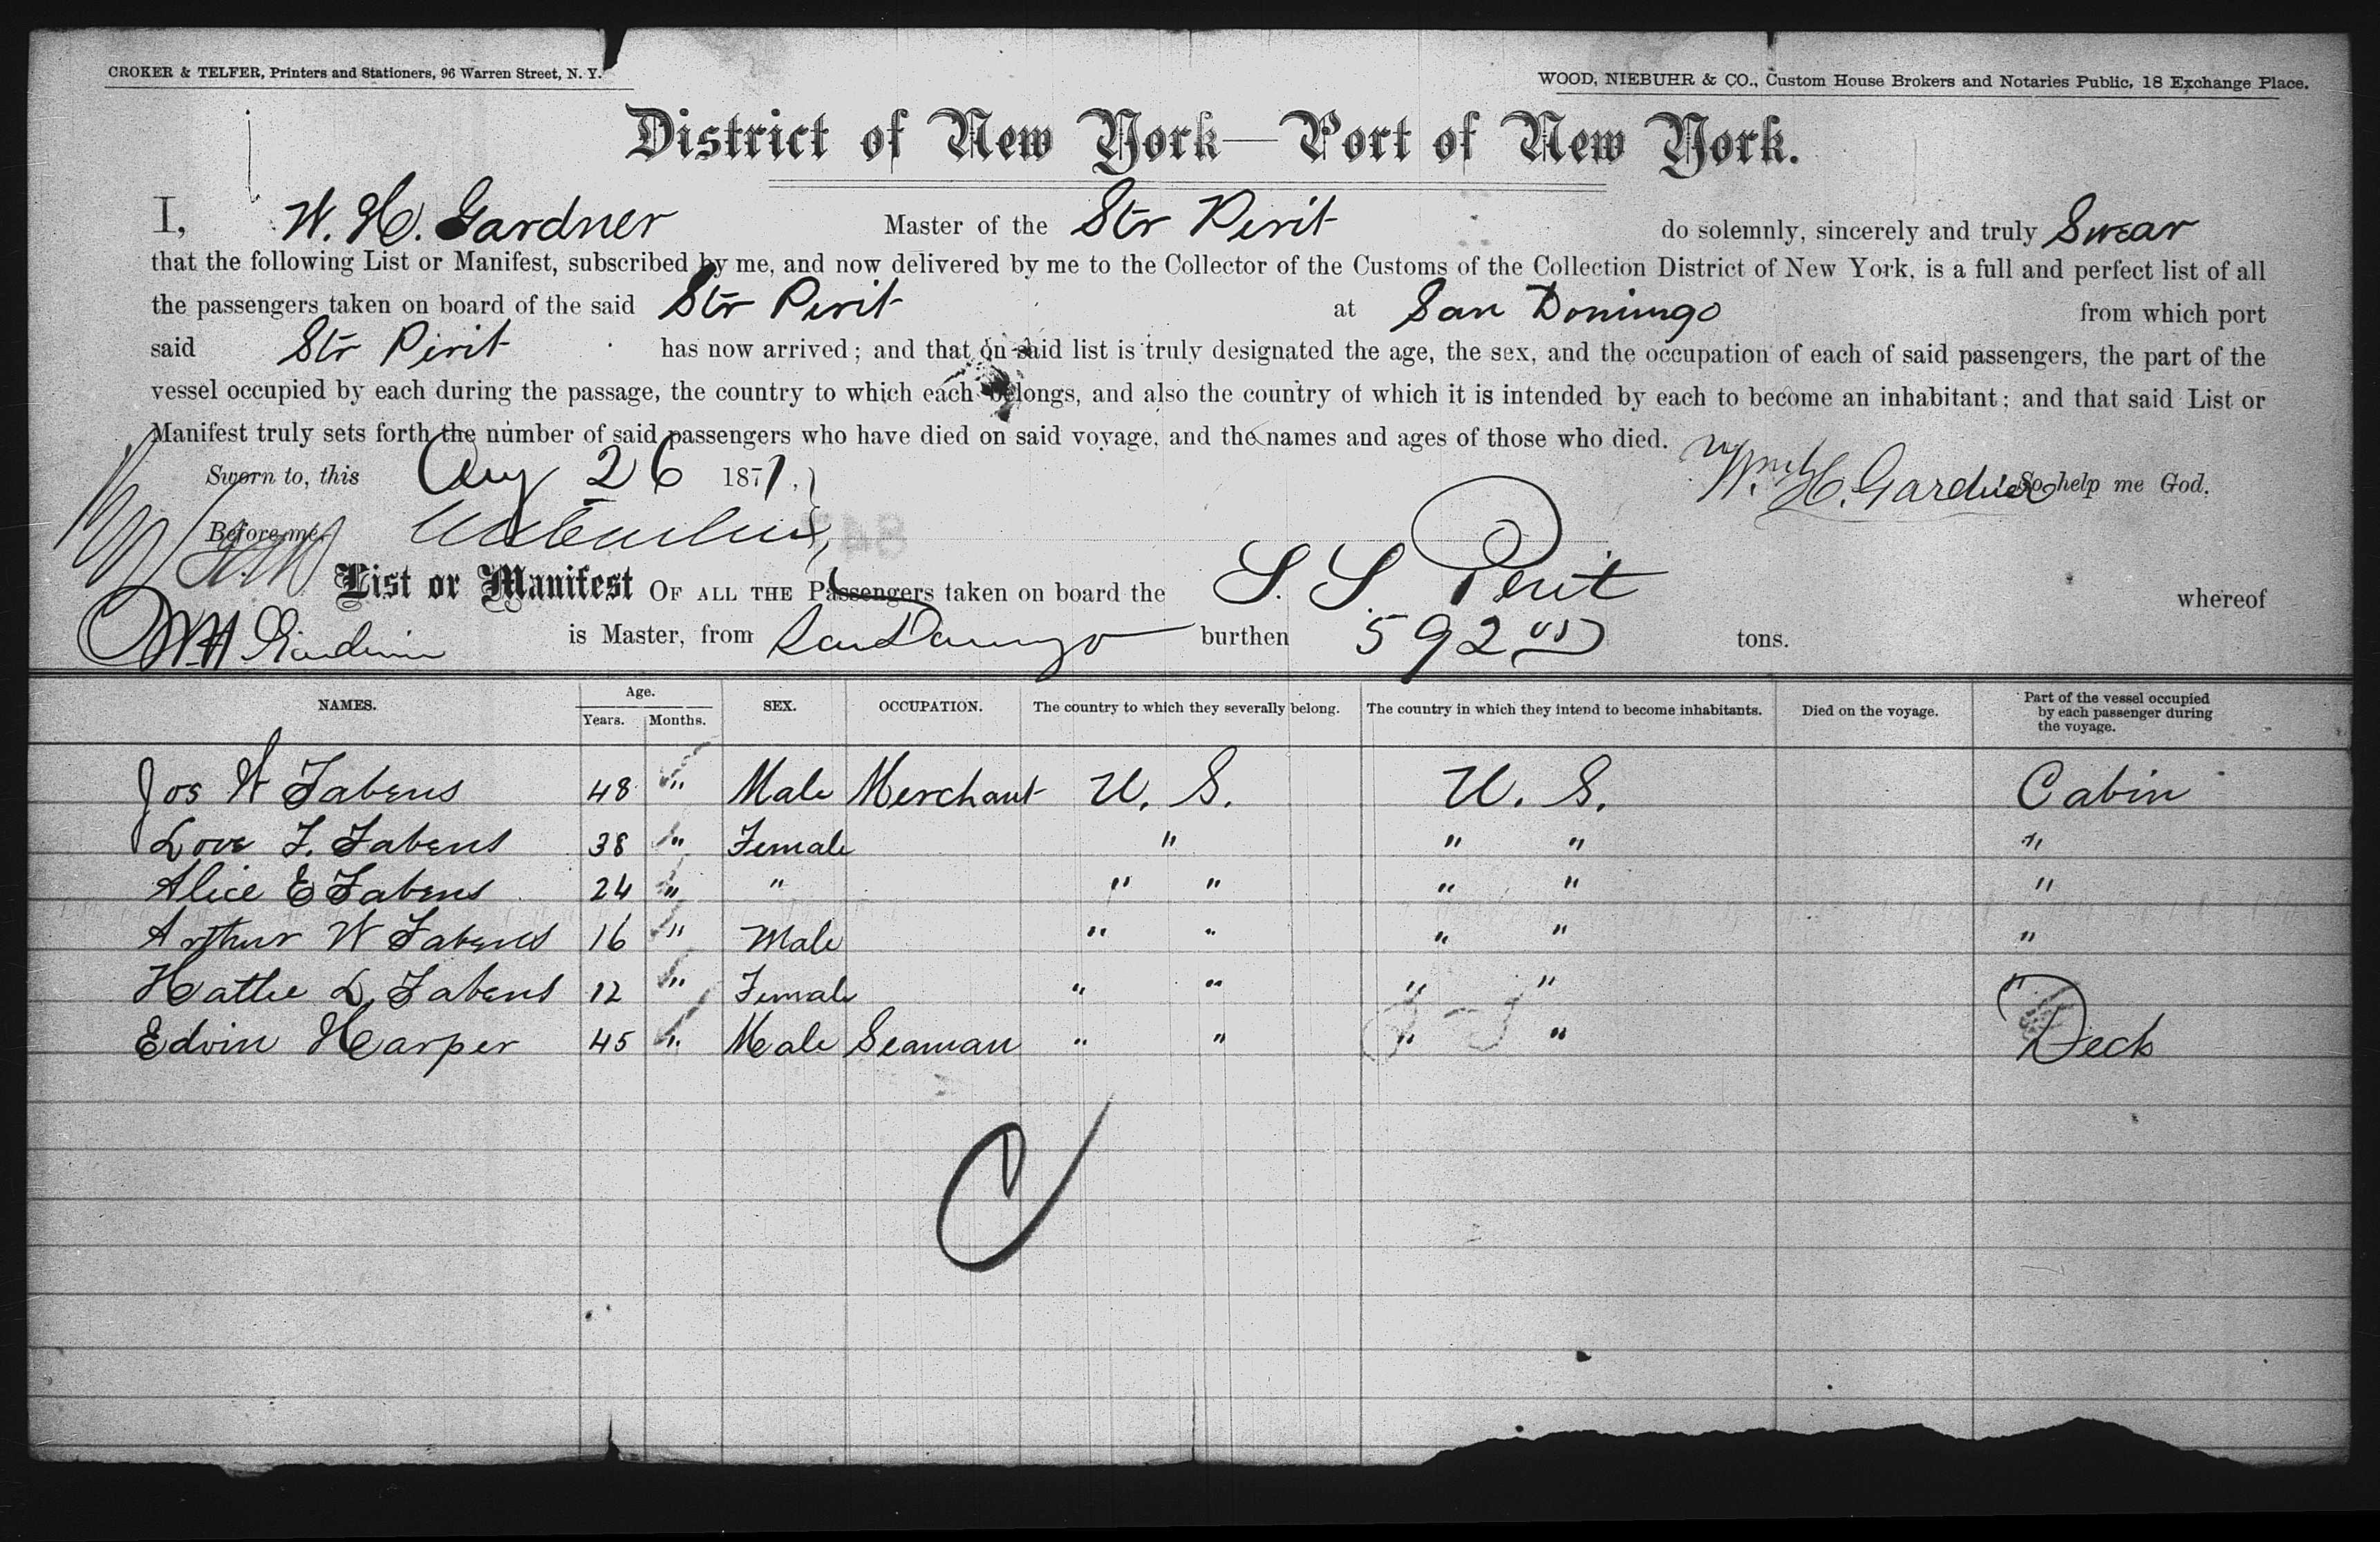 CROKER & TELFER, Printers and Stationers, 96 Warren Street, N. Y.
WOOD, NIEBUHR & CO., Custom House Brokers and Notaries Public, 18 Exchange Place.
District of New York—Port of New York.
I, W. H. Gardner Master of the Str Perit do solemnly, sincerely and truly Swear
that the following List or Manifest, subscribed by me, and now delivered by me to the Collector of the Customs of the Collection District of New York, is a full and perfect list of all
the passengers taken on board of the said Str Perit at San Domingo from which port
said Str Perit has now arrived; and that on said list is truly designated the age, the sex, and the occupation of each of said passengers, the part of the
vessel occupied by each during the passage, the country to which each belongs, and also the country of which it is intended by each to become an inhabitant; and that said List or
Manifest truly sets forth the number of said passengers who have died on said voyage, and the names and ages of those who died.
Sworn to, this Aug 26 1871, W. H. Gardner So help me God.
Before me,
List or Manifest OF ALL THE Passengers taken on board the S. S. Perit whereof
W H Gardner is Master, from San Domingo burthen 592 tons.
NAMES. Age. Years. Months. SEX. OCCUPATION. The country to which they severally belong. The country in which they intend to become inhabitants. Died on the voyage. Part of the vessel occupied by each passenger during the voyage.
Jos W Fabens 48 " Male Merchant U. S. U. S. Cabin
Love F. Fabens 38 " Female " " " "
Alice E Fabens 24 " " " " " " "
Arthur W Fabens 16 " Male " " " " "
Hattie L Fabens 12 " Female " " " " "
Edwin Harper 45 " Male Seaman " " " " Deck